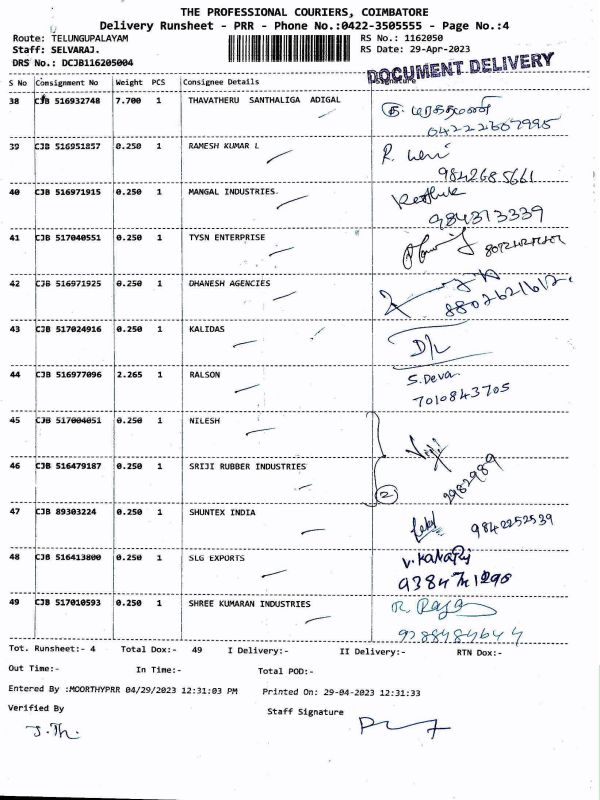 THE PROFESSIONAL COURIERS, COIMBATORE
Delivery Runsheet - PRR - Phone No.:0422-3505555 - Page No.:4
Route: TELUNGUPALAYAM
RS No.: 1162050
Staff: SELVARAJ.
RS Date: 29-Apr-2023
DRS No.: DCJB116205004
DOCUMENT DELIVERY
S No Consignment No Weight PCS Consignee Details Signature
38 CJB 516932748 7.700 1 THAVATHERU SANTHALIGA ADIGAL
04222607995
39 CJB 516951857 0.250 1 RAMESH KUMAR L
9842685661
40 CJB 516971915 0.250 1 MANGAL INDUSTRIES.
984313339
41 CJB 517040551 0.250 1 TYSN ENTERPRISE
42 CJB 516971925 0.250 1 DHANESH AGENCIES
43 CJB 517024916 0.250 1 KALIDAS
D/L
44 CJB 516977096 2.265 1 RALSON
S. Deva
7010843705
45 CJB 517004051 0.250 1 NILESH
46 CJB 516479187 0.250 1 SRIJI RUBBER INDUSTRIES
2
47 CJB 89303224 0.250 1 SHUNTEX INDIA
9842252539
48 CJB 516413800 0.250 1 SLG EXPORTS
49 CJB 517010593 0.250 1 SHREE KUMARAN INDUSTRIES
Tot. Runsheet:- 4 Total Dox:- 49 I Delivery:- II Delivery:- RTN Dox:-
Out Time:- In Time:- Total POD:-
Entered By :MOORTHYPRR 04/29/2023 12:31:03 PM Printed On: 29-04-2023 12:31:33
Verified By Staff Signature
J.Th.